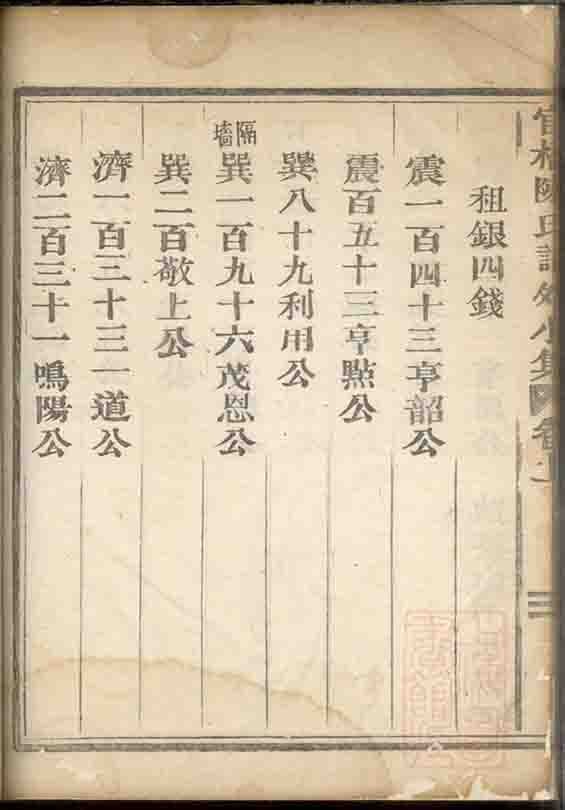 租銀四錢
震一百四十三亨韶公
震百五十三亨點公
巽八十九利用公
隔墻
巽一百九十六茂恩公
巽二百敬上公
濟一百三十三一道公
濟二百三十一鳴陽公
陳氏譜外小集